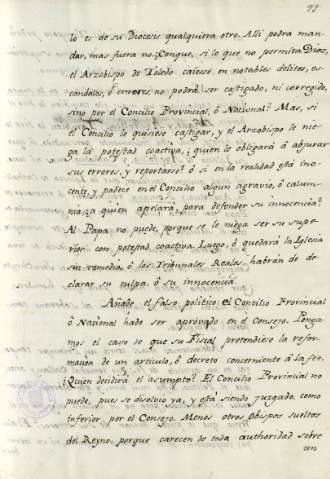 99
lo es de su Diocesis qualquiera otro. Alli podra man-
dar, mas fuera no. ¿Conque, si lo que no permita Dios,
el Arzobispo de Toledo caiesse en notables delitos, es-
candalos, ó errores, no podrá ser castigado, ni corregido,
sino por el Concilio Provincial, ó Nacional? Mas, si
el Concilio le quisiese castigar, y el Arzobispo le nie-
ga la potestad coactiva, ¿quien le obligará à abjurar
sus errores, y reportarse? ó si en la realidad está ino-
cente, y padece en el Concilio algun agravio, ó calum-
nia, ¿a quien apelará, para defender su innocencia?
Al Papa no puede, porque se le niega ser su supe-
rior con potestad coactiva. Luego, ó quedará la Iglesia
sin remedio, ó los Tribunales Reales habrán de de-
clarar su culpa, ó su innocencia.
Añade el falso politico: el Concilio Provincial
ò Nacional hade ser aprovado en el Consejo. Ponga-
mos el caso de que su Fiscal pretendiese la refor-
macion de un articulo, ó decreto concerniente à la fee.
¿Quien decidirá el asumpto? El Concilio Provincial no
puede, pues se disolvio ya, y está siendo juzgado, como
inferior por el Consejo. Menos otros Obispos sueltos
del Reyno, porque carecen de toda authoridad sobre
un